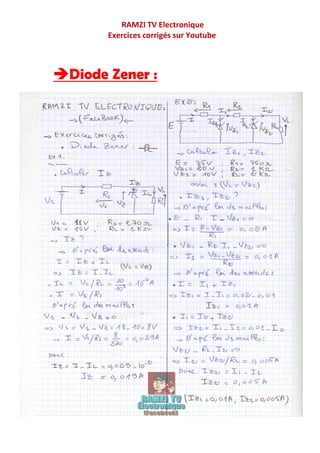 RAMZI TV Electronique
Exercices corrigés sur Youtube
➔Diode Zener :
RAMZI TV ELECTRONIQUE:
→ (FaceBook) ←
→ Exercices Corrigés:
• Diode Zener:
EX1:
• Calculer Iz
I
Iz
IL
R1
V1
Vz
RL
VL
Vs
Vs = 18V ; R1 = 270Ω
Vz = 10V ; RL = 1KΩ
→ Iz ?
→ D'après Loi des nœuds:
I = Iz + IL
=> Iz = I - IL (VL = Vz)
• IL = VL/RL = 10/10³ = 10⁻²A
• I = V1/R1
D'après Loi des mailles
Vs - V1 - Vz = 0
=> V1 = Vs - Vz = 18-10 = 8V
→ I = V1/R1 = 8/270 = 0,029A
Donc:
Iz = I - IL = 0,029 - 10⁻²
Iz = 0,019A
EX2:
E
I
R1
R2
I1
IL
Iz1
Vz1
Iz2
Vz2
RL
VL
→ Calculer Iz1, Iz2
E = 35V ; R1 = 750Ω
Vz1 = 20V ; R2 = 1KΩ
Vz2 = 10V ; RL = 2KΩ
avec : (VL = Vz2)
• Iz1, Iz2 ?
→ D'après Loi des mailles
• E - R1 I - Vz1 = 0
=> I = E-Vz1/R1 = 0,02A
• Vz1 - R2 I1 - Vz2 = 0
=> I1 = Vz1-Vz2/R2 = 0,01A
→ D'après Loi des nœuds
• I = I1 + Iz1
=> Iz1 = I - I1 = 0,02-0,01
Iz1 = 0,01A
• I1 = IL + Iz2
=> Iz2 = I1 - IL = 0,01 - IL
→ D'après Loi des mailles:
Vz2 - RL IL = 0
=> IL = Vz2/RL = 0,005A
Donc: Iz2 = I1 - IL
Iz2 = 0,005A
(Iz1 = 0,01A, Iz2 = 0,005A)
RAMZI TV
Électronique
(Facebook)